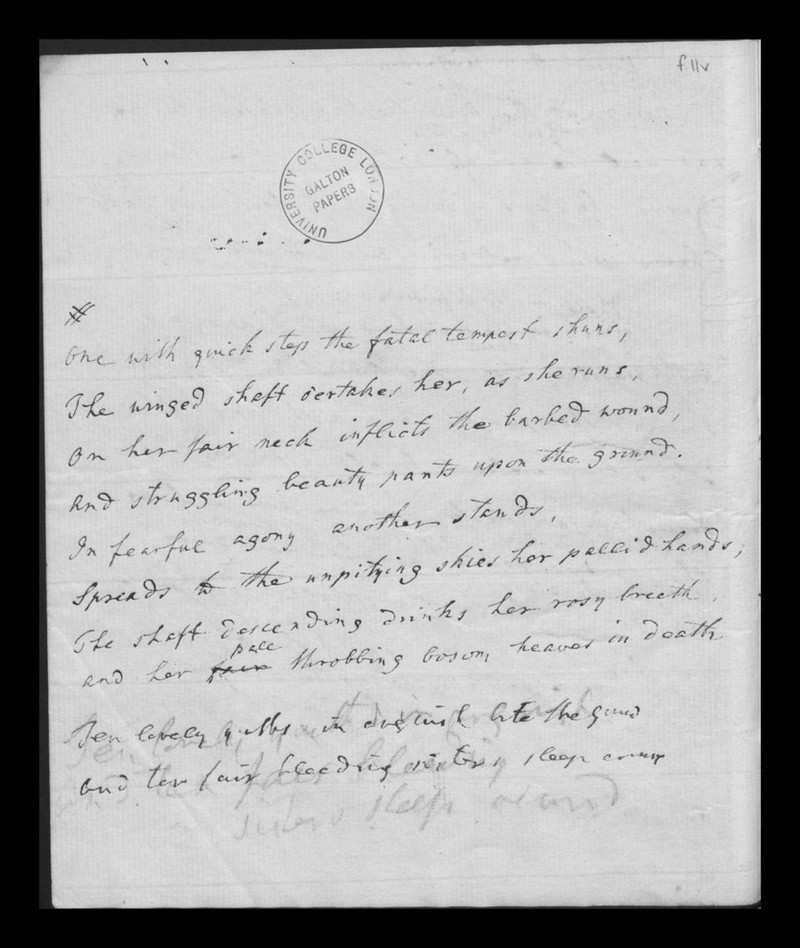 f.11v
UNIVERSITY COLLEGE LONDON
GALTON
PAPERS
#
One with quick step the fatal tempest shuns,
The winged shaft o'ertakes her, as she runs,
On her fair neck inflicts the barbed wound,
And struggling beauty pants upon the ground.
In fearful agony another stands,
Spreads to the unpitying skies her pallid hands;
The shaft descending drinks her rosy breath,
pale
and her fair throbbing bosom heaves in death
Ten lovely in anguish bite the
and ten fair bleeding sisters sleep around
Ten
fair bleeding
sisters sleep around